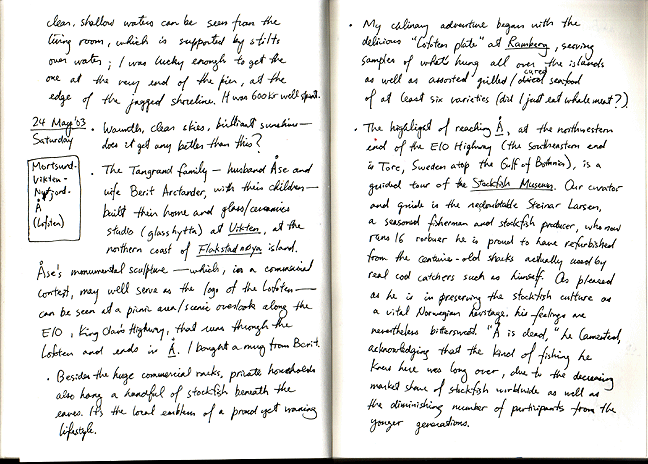 clear, shallow waters can be seen from the
living room, which is supported by stilts
over water; I was lucky enough to get the
one at the very end of the pier, at the
edge of the jagged shoreline. It was 600 kr well spent.
24 May '03
Saturday
• Warmth, clear skies, brilliant sunshine—
does it get any better than this?
Mortsund-
Vikten-
Nusfjord-
Å
(Lofoten)
• The Tangrand family — husband Åse and
wife Berit Arctander, with their children—
built their home and glass/ceramics
studio (glasshytta) at Vikten, at the
northern coast of Flakstadøya island.
Åse's monumental sculpture — which, in a commercial
contest, may well serve as the logo of the Lofoten—
can be seen at a picnic area/scenic overlook along the
E10, King Olav's Highway, that runs through the
Lofoten and ends in Å. I bought a mug from Berit.
• Besides the huge commercial racks, private households
also hang a handful of stockfish beneath the
eaves. It's the local emblem of a proud yet waning
lifestyle.
• My culinary adventure began with the
delicious "Lofoten plate" at Ramberg, serving
samples of what's hung all over the islands
as well as assorted grilled/cured seafood
of at least six varieties (did I just eat whale meat?)
• The highlight of reaching Å, at the northwestern
end of the E10 Highway (the southeastern end
is Tore, Sweden atop the Gulf of Bothnia), is a
guided tour of the Stockfish Museum. Our curator
and guide is the redoubtable Steinar Larsen,
a seasoned fisherman and stockfish producer, who now
runs 16 rorbuer he is proud to have refurbished
from the centuries-old shacks actually used by
real cod catchers such as himself. As pleased
as he is in preserving the stockfish culture as
a vital Norwegian heritage, his feelings are
nevertheless bittersweet. "Å is dead," he lamented,
acknowledging that the kind of fishing he
knew here was long over, due to the decreasing
market share of stockfish worldwide as well as
the diminishing number of participants from the
yonger generations.